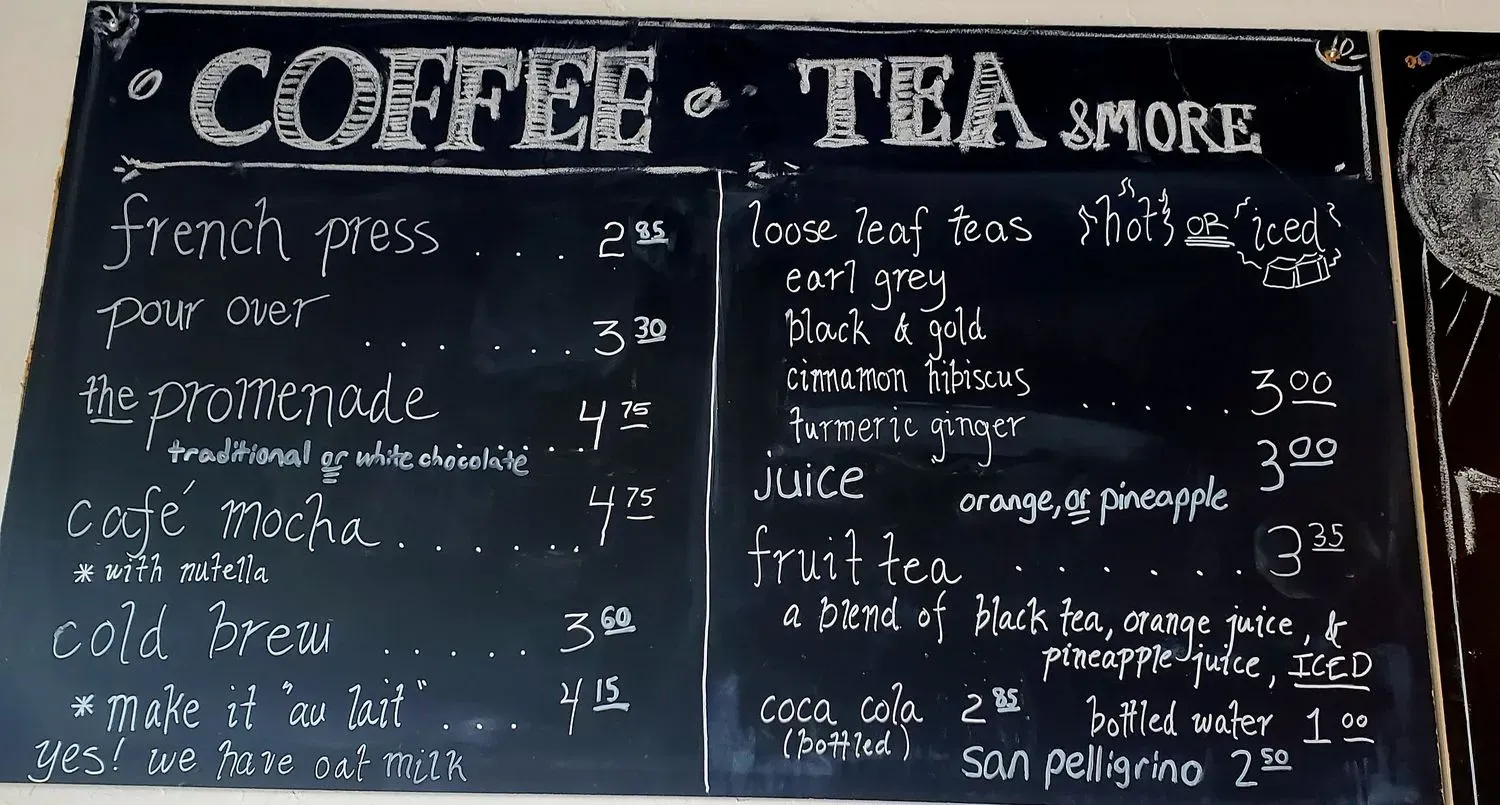 COFFEE
french press . . . 2 85
pour over . . . . . . . 3 30
the promenade 4 75
traditional or white chocolate ...
café mocha . . . . . . . 4 75
* with nutella
cold brew . . . . . 3 60
* make it "au lait" . . . 4 15
yes! we have oat milk
TEA &MORE
loose leaf teas hot OR iced
earl grey
black & gold
cinnamon hibiscus . . . . . . 3 00
turmeric ginger
juice orange, or pineapple 3 00
fruit tea . . . . . . . 3 35
a blend of black tea, orange juice, &
pineapple juice, ICED
coca cola 2 85 bottled water 1 00
(bottled) san pelligrino 2 50